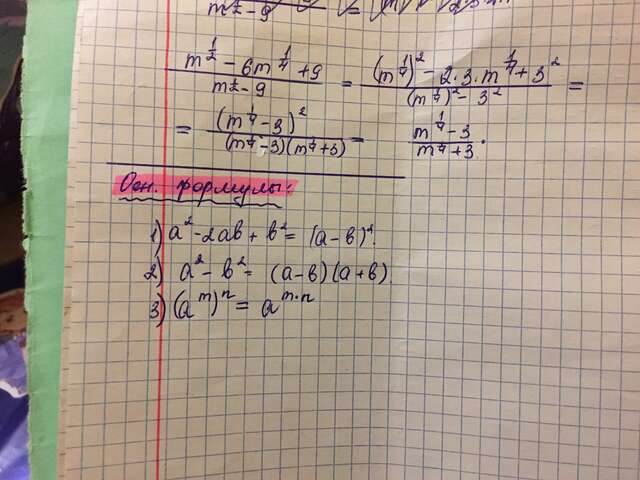 m^{1/2} - 9 =
\frac{m^{1/2} - 6m^{1/4} + 9}{m^{1/2} - 9} = \frac{(m^{1/4})^2 - 2·3·m^{1/4} + 3^2}{(m^{1/4})^2 - 3^2} =
= \frac{(m^{1/4} - 3)^2}{(m^{1/4} - 3)(m^{1/4} + 3)} = \frac{m^{1/4} - 3}{m^{1/4} + 3}.
Осн. формулы:
1) a² - 2ab + b² = (a - b)².
2) a² - b² = (a - b)(a + b)
3) (a^m)^n = a^{m·n}